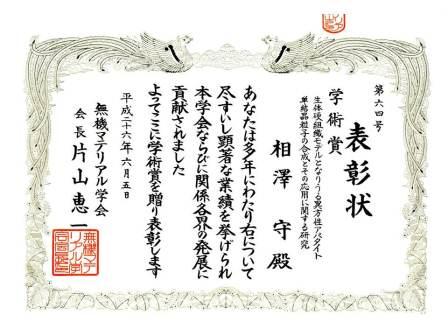 第六四号
表彰状
学術賞
生体硬組織モデルとなりうる異方性アパタイト
単結晶粒子の合成とその応用に関する研究
相澤 守 殿
あなたは多年にわたり右について
尽すいし顕著な業績を挙げられ
本学会ならびに関係各界の発展に
貢献されました
よってここに学術賞を贈り表彰します
平成二十六年六月五日
無機マテリアル学会
会長 片山恵一